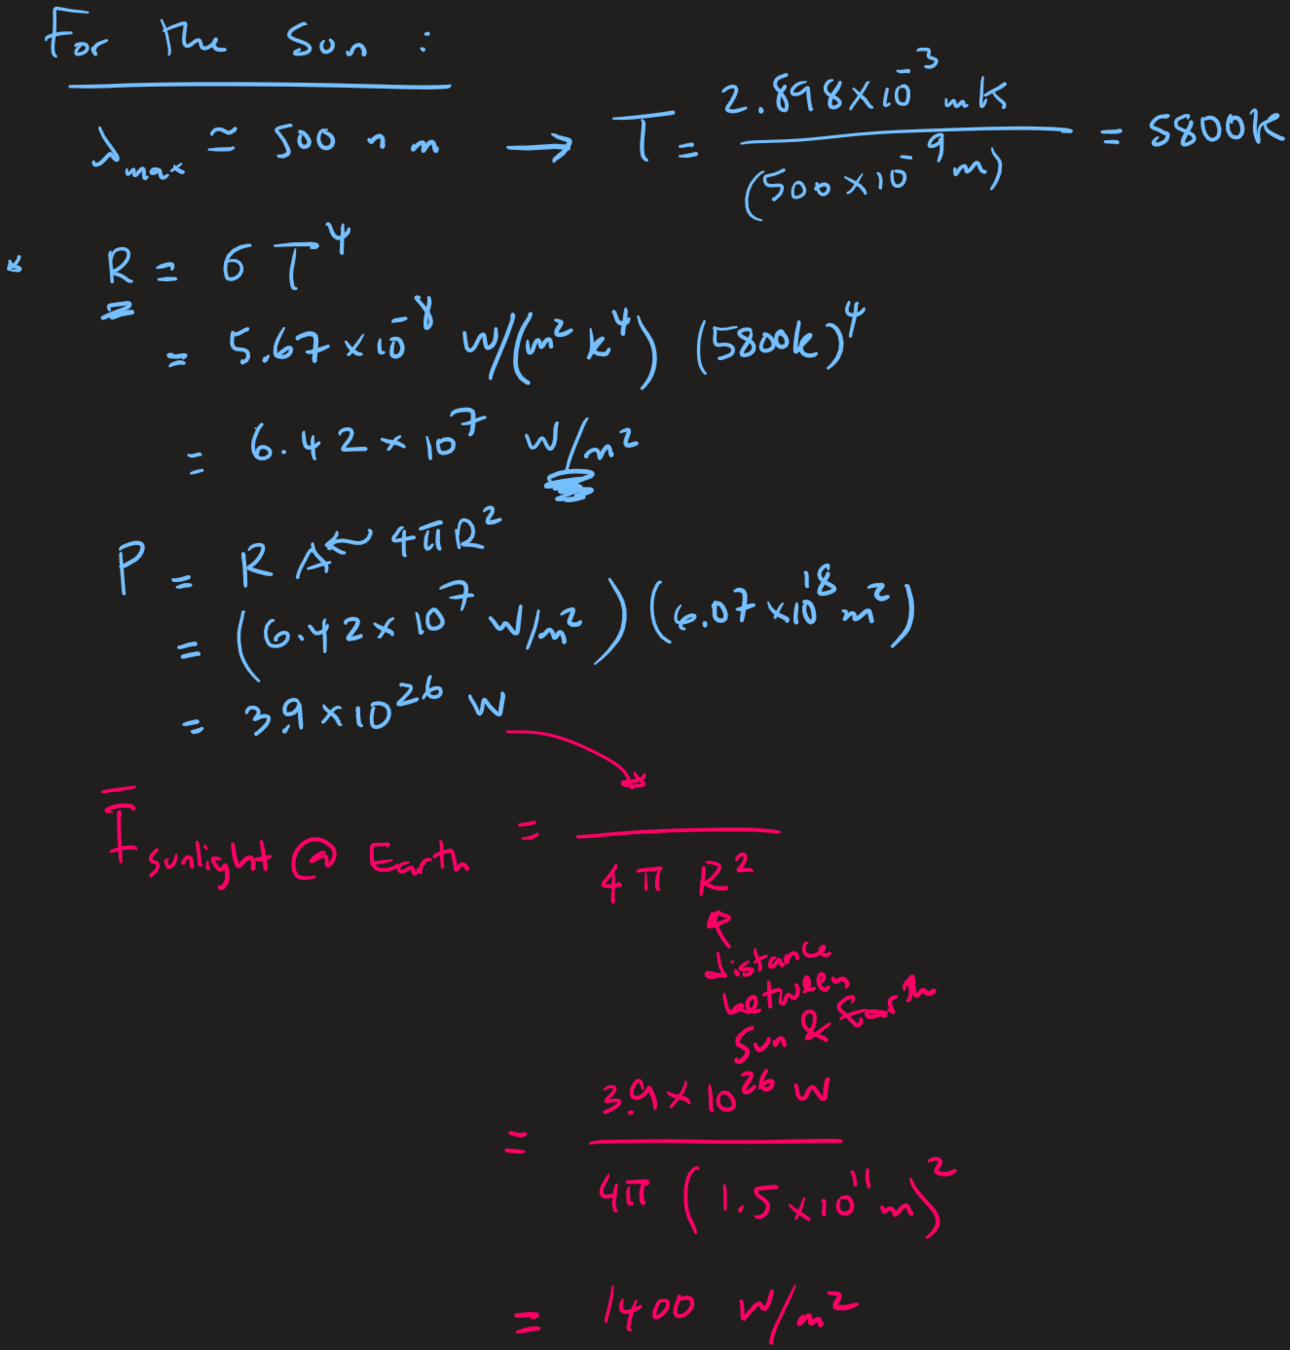 For the Sun :
λmax ≅ 500 nm → T = 2.898×10⁻³ mK / (500×10⁻⁹ m) = 5800K
* R = σ T⁴
= 5.67×10⁻⁸ W/(m² K⁴) (5800K)⁴
= 6.42×10⁷ W/m²
P = R A ← 4πR²
= (6.42×10⁷ W/m²)(6.07×10¹⁸ m²)
= 3.9×10²⁶ W
Ī sunlight @ Earth = / 4π R²
distance
between
Sun & Earth
= 3.9×10²⁶ W / 4π (1.5×10¹¹ m)²
= 1400 W/m²